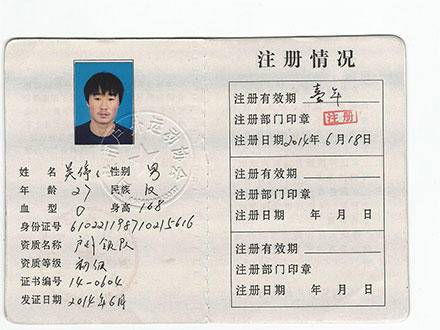 姓 名 吴伟 性别 男
年 龄 27 民族 汉
血 型 O 身高 168
身份证号 610221198710215616
资质名称 户外领队
资质等级 初级
证书编号 14-0604
发证日期 2014年6月
注册情况
注册有效期 壹年
注册部门印章 注册
注册日期 2014年6月18日
注册有效期
注册部门印章
注册日期 年 月 日
注册有效期
注册部门印章
注册日期 年 月 日